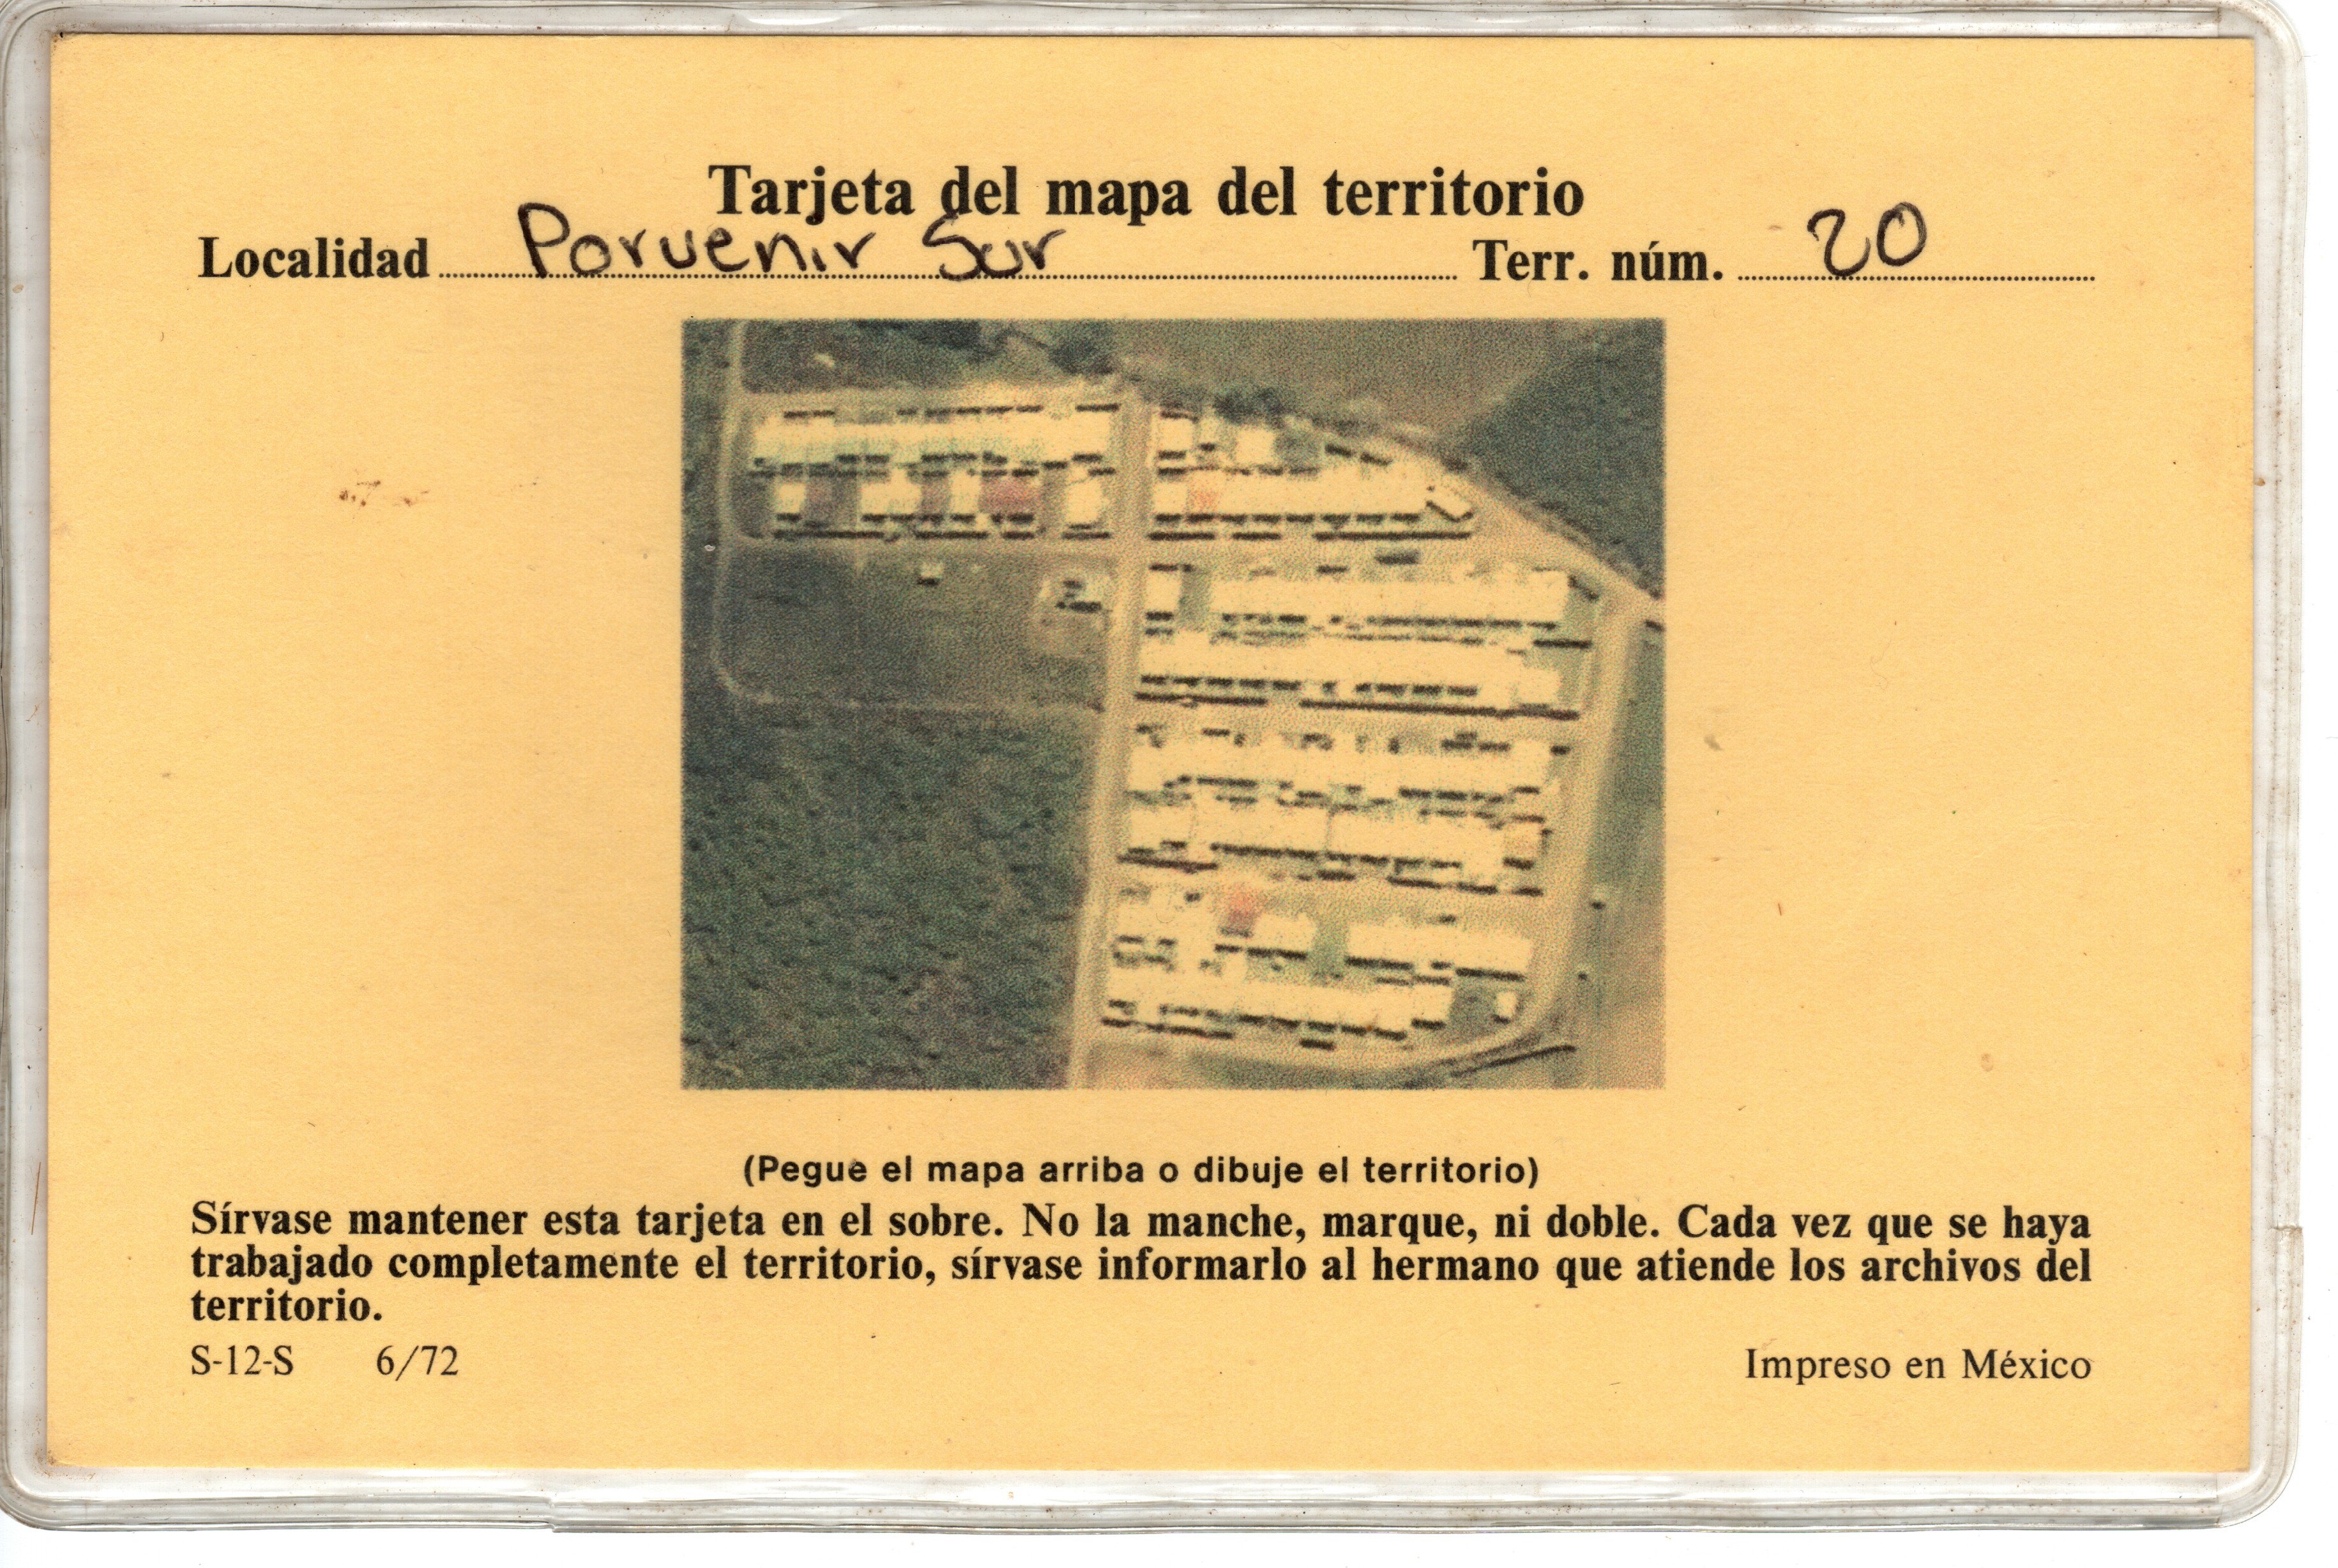 Tarjeta del mapa del territorio
Localidad Porvenir Sur Terr. núm. 20
(Pegue el mapa arriba o dibuje el territorio)
Sírvase mantener esta tarjeta en el sobre. No la manche, marque, ni doble. Cada vez que se haya
trabajado completamente el territorio, sírvase informarlo al hermano que atiende los archivos del
territorio.
S-12-S 6/72 Impreso en México